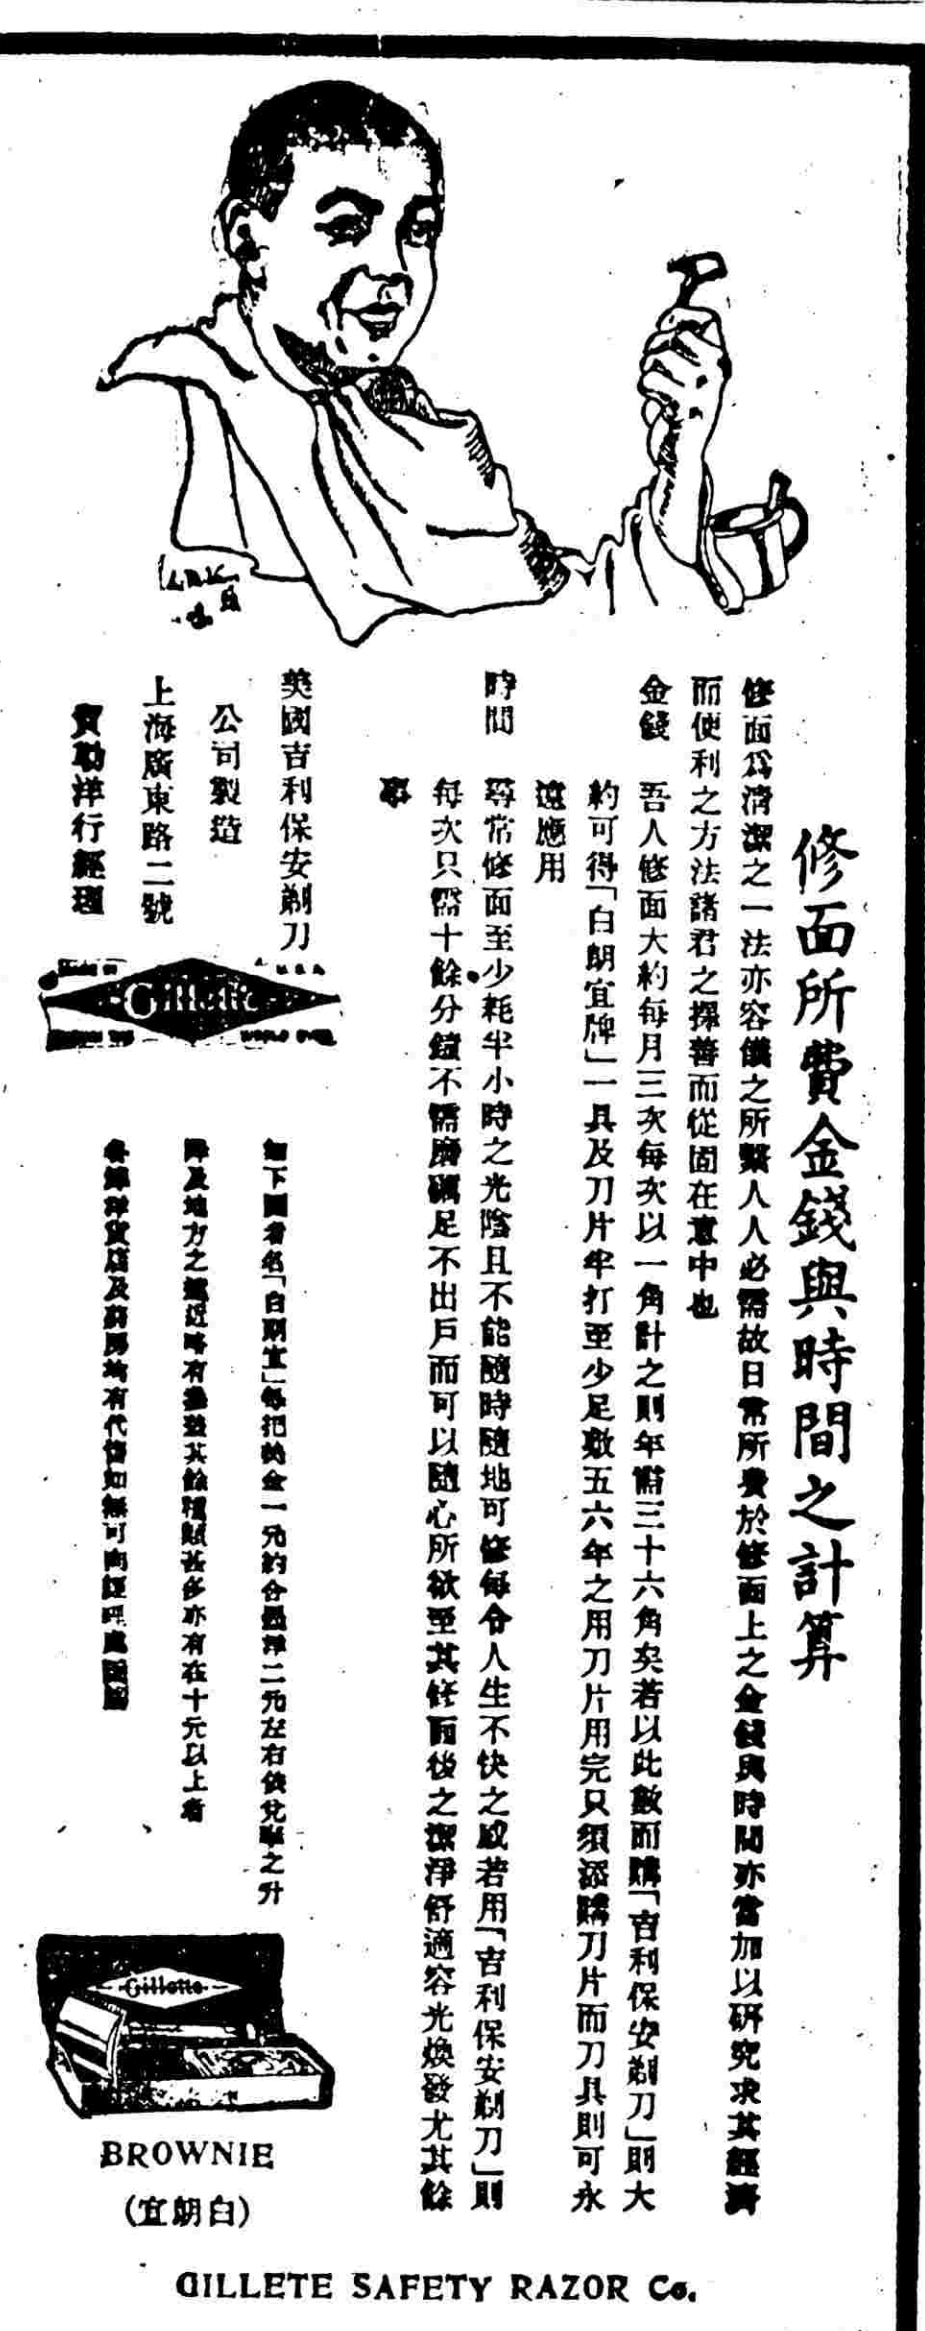 修面所費金錢與時間之計算
修面爲清潔之一法亦容儀之所繫人人必需故日常所費於修面上之金錢與時間亦當加以研究求其經濟
而便利之方法諸君之擇善而從固在意中也
金錢 吾人修面大約每月三次每次以一角計之則年需三十六角矣若以此數而購「吉利保安剃刀」則大
約可得「白朗宜牌」一具及刀片半打至少足敷五六年之用刀片用完只須添購刀片而刀具則可永
遠應用
時間 尋常修面至少耗半小時之光陰且不能隨時隨地可修每令人生不快之感若用「吉利保安剃刀」則
每次只需十餘分鐘不需磨礪足不出戶而可以隨心所欲至其修面後之潔淨舒適容光煥發尤其餘
事
美國吉利保安剃刀
公司製造
上海廣東路二號
洋行經理
Gillette
如下圖者名「白朗宜」每把美金一元約合墨洋二元左右依兌率之升
降及地方之遠近略有差其餘種類甚多亦有在十元以上者
各埠洋貨店及藥房均有代售如無可向經理處
Gillette
BROWNIE
(宜朗白)
GILLETE SAFETY RAZOR Co.